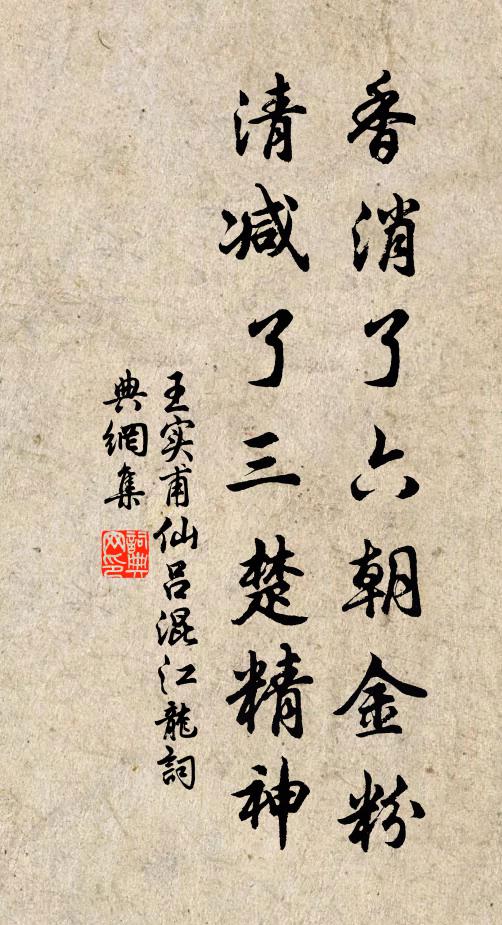 香消了六朝金粉
清减了三楚精神
王实甫仙吕混江龍詞
典網集
詞典
网印